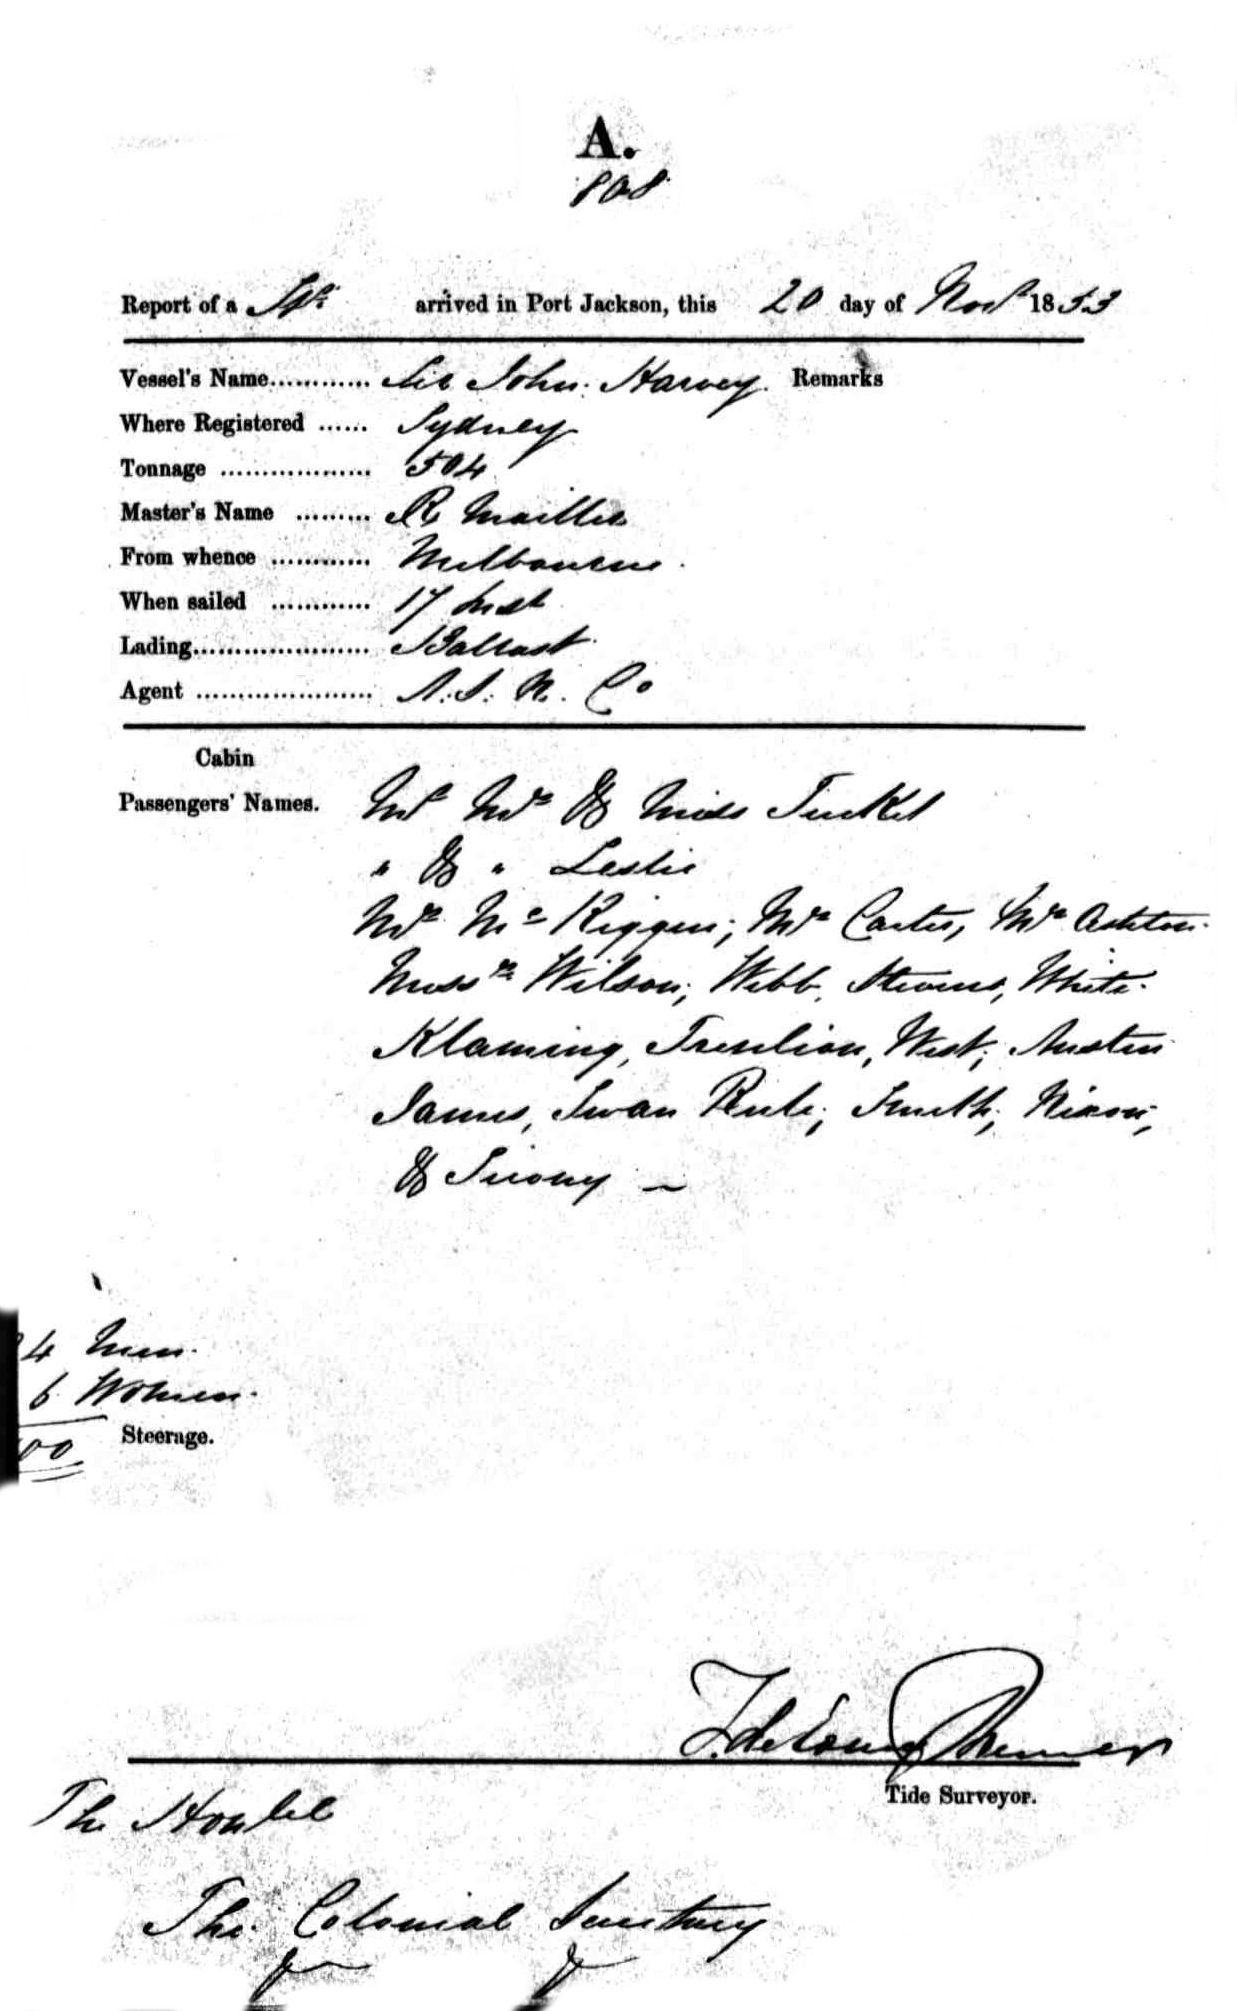 A.
808
Report of a Str arrived in Port Jackson, this 20 day of Novr 1853
Vessel's Name............ Sir John Harvey. Remarks
Where Registered ...... Sydney
Tonnage .................. 504
Master's Name ......... R
From whence ............ Melbourne.
When sailed ............ 17 Inst
Lading..................... Ballast
Agent ..................... A. S. N. Co
Cabin
Passengers' Names. Mr Mrs & Miss
" & " Leslie
Mrs Mc Mrs Carter, Mrs Ashton
Messrs Wilson, Webb, Stevens, White.
West, Austen
James, Swan Smith, Nixon,
&
4 Men.
6 Women.
00 Steerage.
Tide Surveyor.
The Honble
The Colonial Secretary